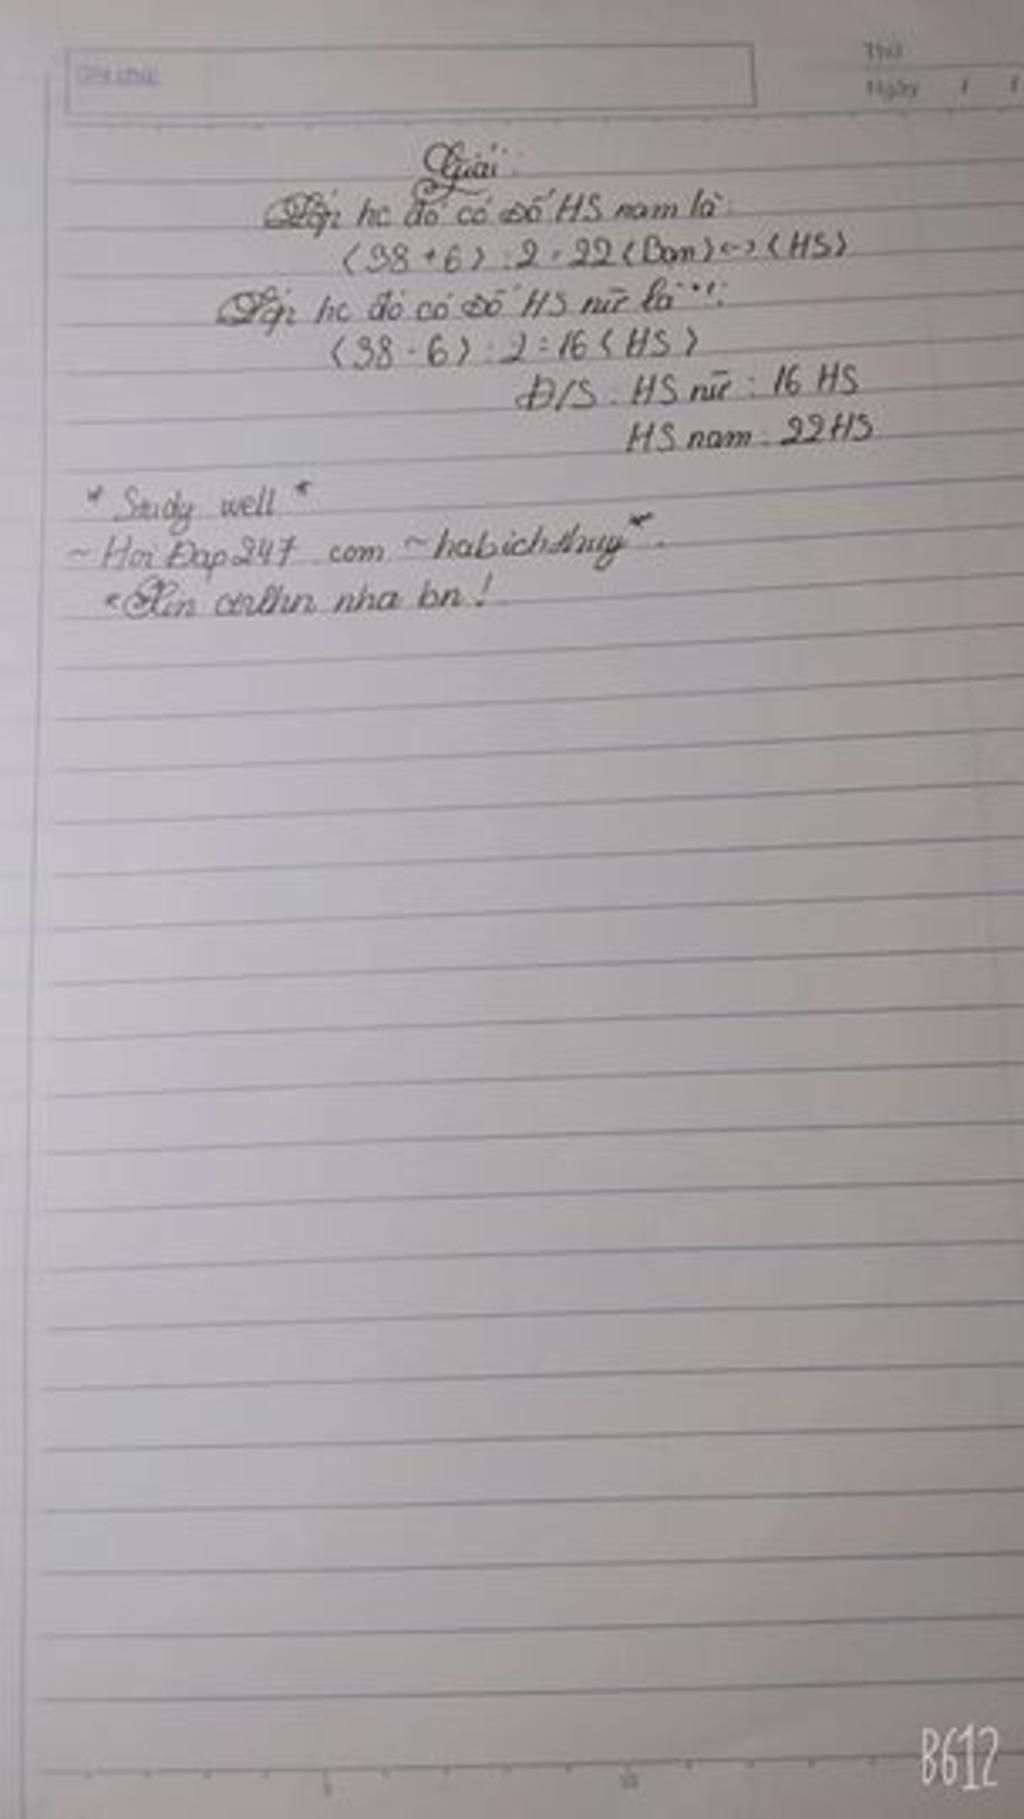 Thứ
Ngày / /
Giải:
Lớp hc đó có số HS nam là:
(38 + 6) : 2 = 22 (Bạn) <-> (HS)
Lớp hc đó có số HS nữ là:
(38 - 6) : 2 = 16 (HS)
Đ/S : HS nữ : 16 HS
HS nam : 22 HS
* Study well *
~ Hoi Đap247 . com ~ habichthuy*.
Xin ctrlhn nha bn !
5
10
B612